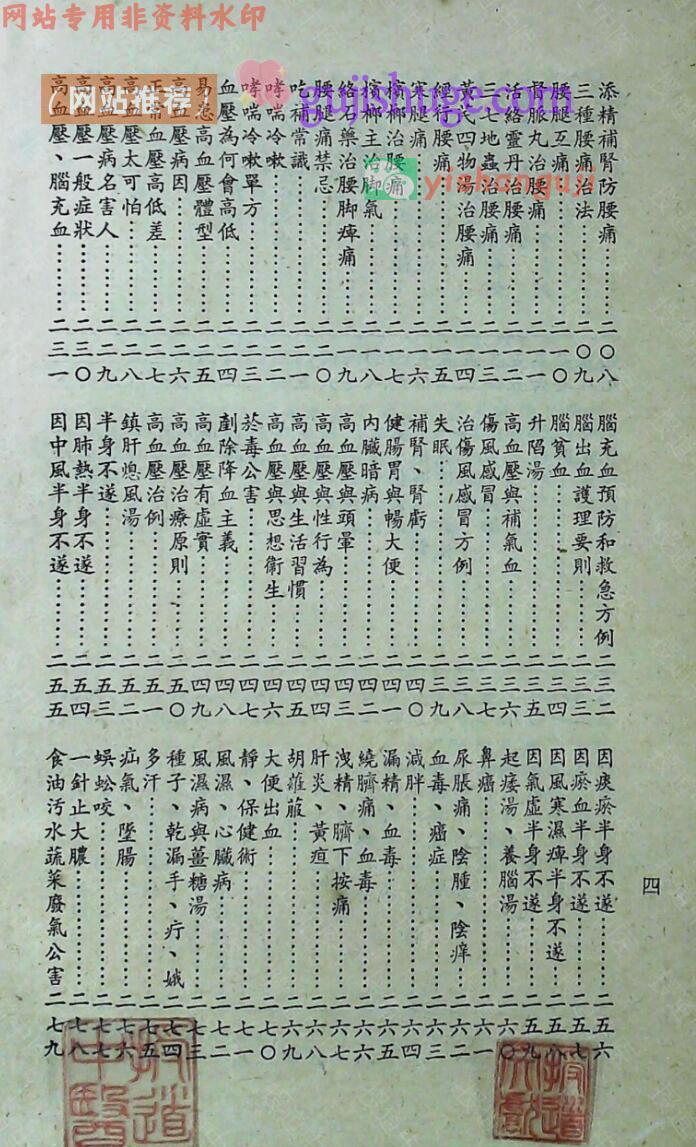 网站专用非资料水印
(网站推荐)
gujishuge.com
yishanguji
添精補腎防腰痛……二〇八
三種腰痛治法……二〇九
腰腿互痛……二一〇
督脈九治腰痛……二一一
活絡靈丹治腰痛……二一二
三七地蟲治腰痛……二一三
黃氏四物湯治腰痛……二一四
經行腰痛……二一五
寒腿痛……二一六
檳榔治腰痛……二一七
檳榔主治腰脚氣……二一八
絡石藥治腰脚痺痛……二一九
腰腿痛禁忌……二二〇
吃補常識……二二一
哮喘冷嗽……二二二
哮喘冷嗽單方……二二三
血壓為何會高低……二二四
易患高血壓體型……二二五
高血壓病因……二二六
正常血壓高低差……二二七
高血壓太可怕……二二八
高血壓病名害人……二二九
高血壓一般症狀……二三〇
高血壓、腦充血……二三一
腦充血預防和救急方例二三二
腦出血護理要則……二三三
腦貧血……二三四
升陷湯……二三五
高血壓與補氣血……二三六
傷風感冒……二三七
治傷風感冒方例……二三八
失眠……二三九
補腎、腎虧……二四〇
健腸胃與暢大便……二四一
內臟暗病……二四二
高血壓與頭暈……二四三
高血壓與性行為……二四四
高血壓與生活習慣……二四五
高血壓與思想衛生……二四六
菸毒公害……二四七
剷除降血主義……二四八
高血壓有虛實……二四九
高血壓治療原則……二五〇
高血壓治例……二五一
鎮肝熄風湯……二五二
半身不遂……二五三
因肺熱半身不遂……二五四
因中風半身不遂……二五五
因痰瘀半身不遂……二五六
因瘀血半身不遂……二五七
因風寒濕痺半身不遂……二五八
因氣虛半身不遂……二五九
起痿湯、養腦湯……二六〇
鼻癌……二六一
尿脹痛、陰腫、陰痒……二六二
血毒、癌症……二六三
減胖……二六四
漏精、血毒……二六五
繞臍痛、血毒……二六六
洩精、臍下按痛……二六七
肝炎、黃疸……二六八
胡蘿蔔……二六九
大便出血……二七〇
靜、保健術……二七一
風濕、心臟病……二七二
風濕病與薑糖湯……二七三
種子、乾漏手、疔、娥二七四
多汗……二七五
疝氣、墜腸……二七六
蜈蚣咬……二七七
一針止大膿……二七七
食油污水蔬菜廢氣公害二七九
四